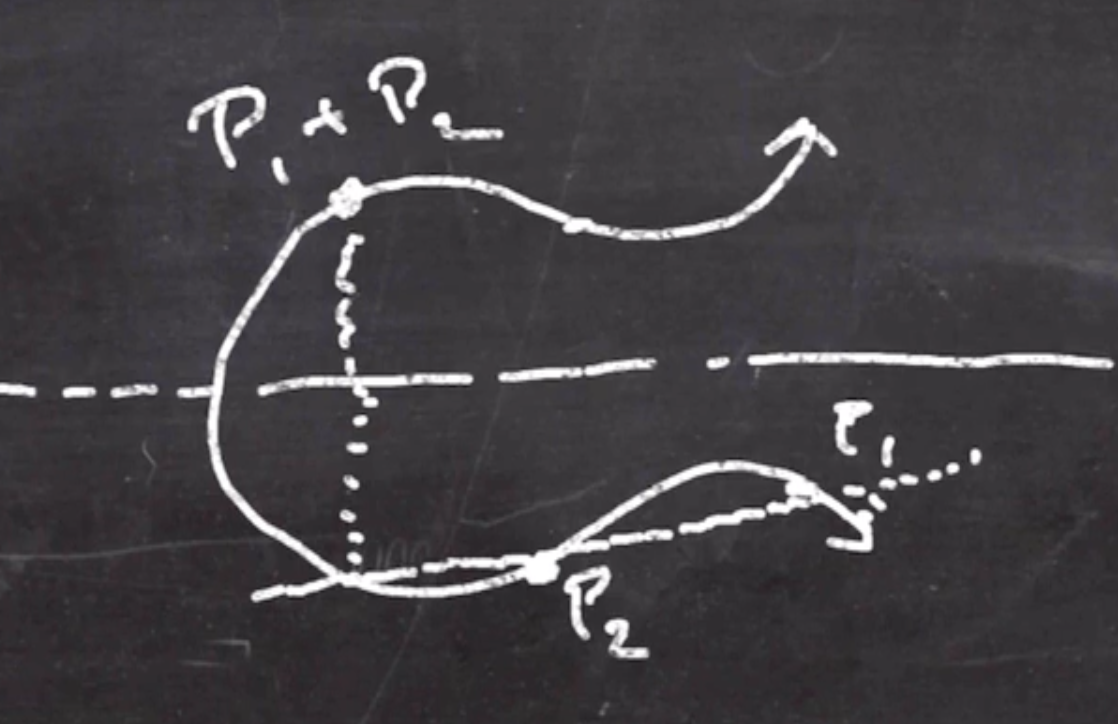 P₁ + P₂
P₁
P₂